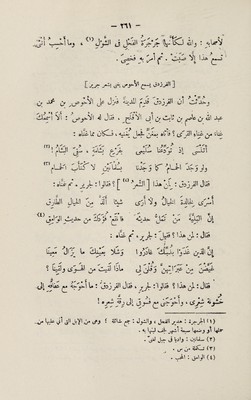 — ٢٦١ —
لأصحابه : والله لكأنها جرجرة الفحل فى الشول (١) ، وما أحسب أنثى
تسمع هذا إلا صبت . ثم أمر به فخصى .
[ الفرزدق يسمع الأحوص بنى بشعر جرير ]
وحدثت أن الفرزدق قدم المدينة فنزل على الأحوص بن محمد بن
عبد الله بن عاصم بن ثابت بن أبى الأقلح ، فقال له الأحوص : ألا أسمعك
غناء من غناء القرى ؟ فأتاه بمغن فجعل يغنيه ، فكان مما غناه :
أتنسى إذ تودعنا سليمى بفرع بشامة ، سقى البشام !
ولو وجد الحمام كما وجدنا بسلمانين لاكتأب الحمام (٢)
فقال الفرزدق : لمن هذا [ الشعر (٣) ] ؟ فقالوا : لجرير . ثم غناه :
أسرى لخالدة الخيال ولا أرى شيئا ألذ من الخيال الطارق
إن البلية من تمل حديثه فانقع فؤادك من حديث الوامق (٤)
فقال : لمن هذا ؟ فقيل : لجرير ، ثم غناه :
إن الذين غدوا بلبك غادروا وشلا بعينك ما يزال معينا
غيضن من عبراتهن وقلن لى ماذا لقيت من الهوى ولقينا ؟
فقال : لمن هذا ؟ فقالوا : لجرير ، فقال الفرزدق : ما أحوجه مع عفافه إلى
خشونة شعرى ، وأحوجنى مع فسوقى إلى رقة شعره !
(١) الجرجرة : هدير الفحل ، والشول : جمع شائلة ؛ وهى من الإبل التى أتى عليها من
حملها أو وضعها سبعة أشهر فجف لبنها .
(٣) تكملة من س .
(٤) الوامق : المحب .